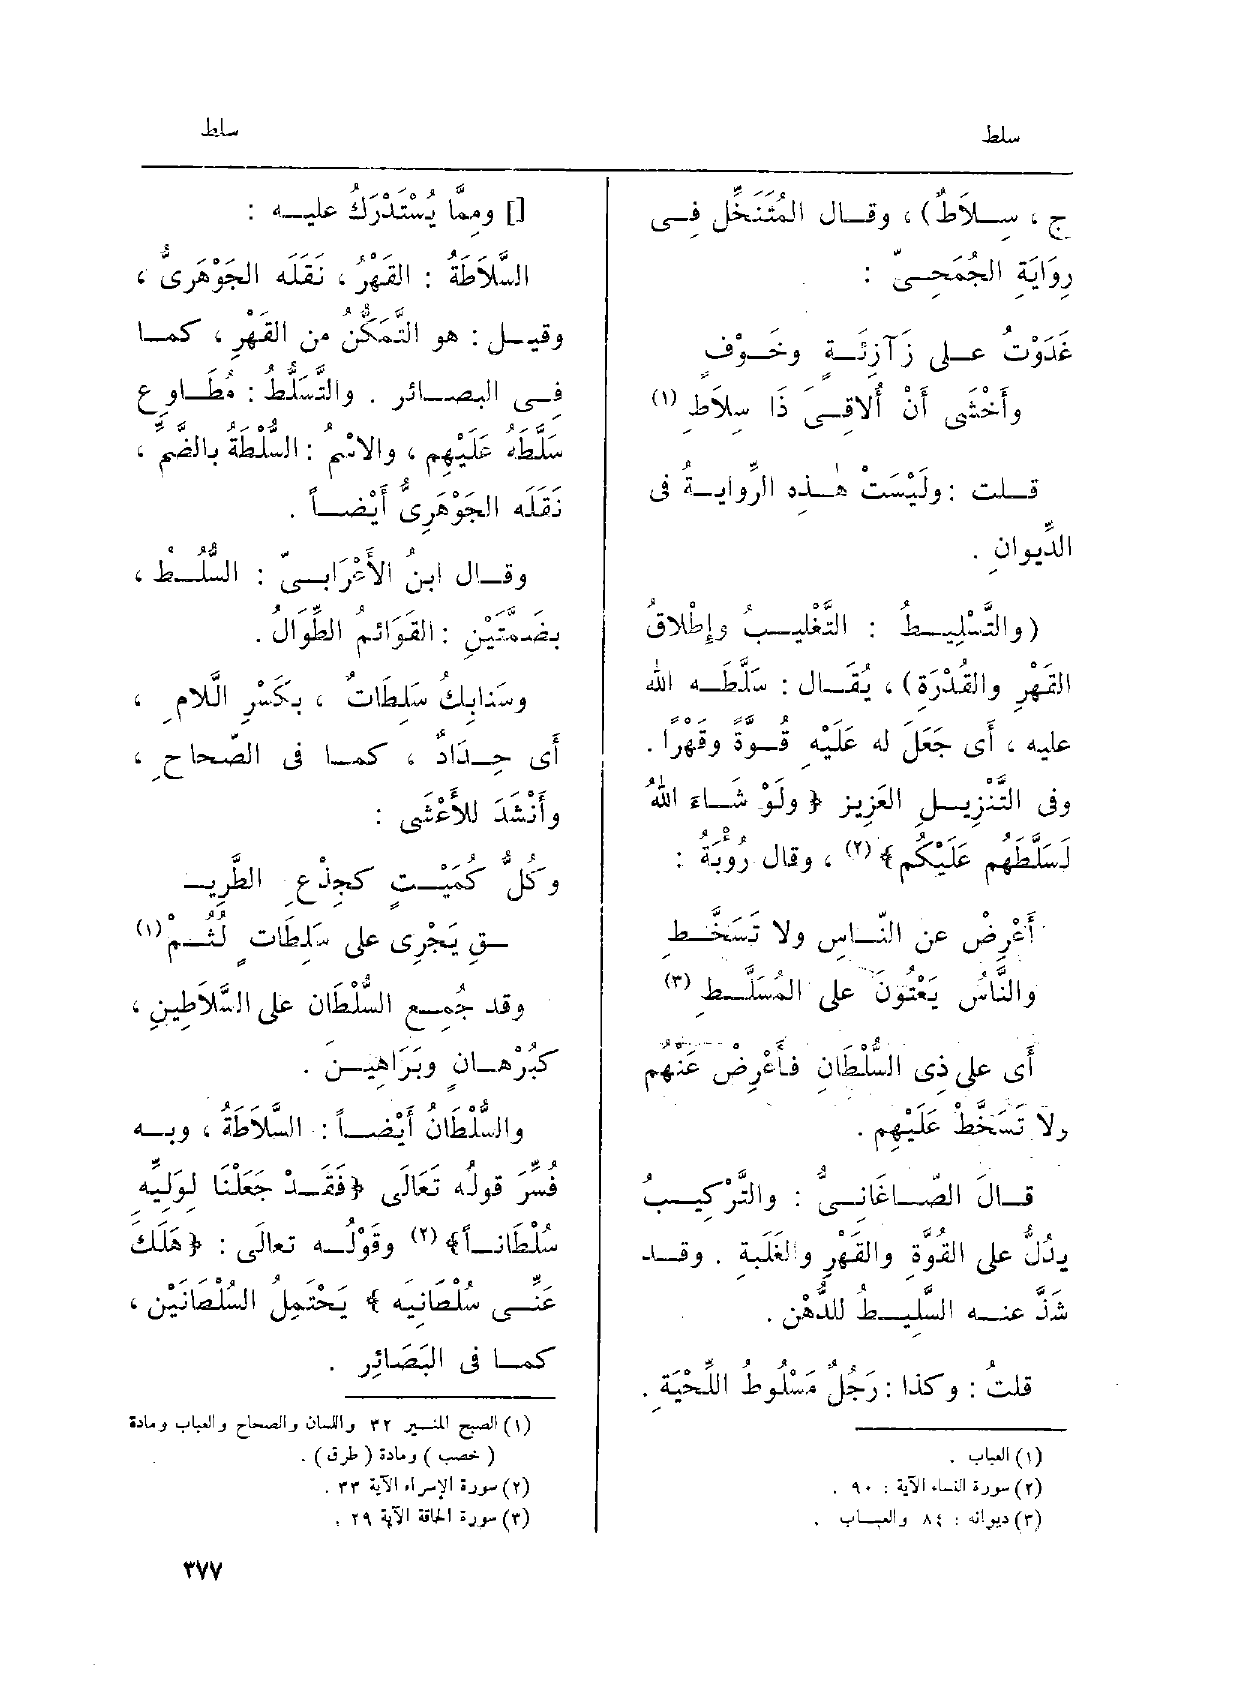 سلط
سلط
ج ، سِلَاطٌ) ، وقال المُتَنَخِّل فِى
رِوَايَةِ الجُمَحِىّ :
غَدَوْتُ على زَآزِئَةٍ وخَوْفٍ
وأَخْشَى أَنْ أُلاقِىَ ذَا سِلَاطِ (١)
قلت : ولَيْسَتْ هٰذِه الرِّوايةُ فى
الدِّيوانِ .
(والتَّسْلِيطُ : التَّغْلِيبُ وإِطْلَاقُ
القَهْرِ والقُدْرَةِ) ، يُقَال : سَلَّطَه اللهُ
عليه ، أَى جَعَلَ له عَلَيْهِ قُوَّةً وقَهْرًا .
وفى التَّنْزِيلِ العَزِيز ﴿ ولَوْ شَاءَ اللهُ
لَسَلَّطَهُم عَلَيْكُم﴾ (٢) ، وقال رُؤْبَةُ :
أَعْرِضْ عن النّاسِ ولا تَسَخَّطِ
والنَّاسُ يَعْتُونَ على المُسَلَّطِ (٣)
أَى على ذِى السُّلْطَانِ فأَعْرِضْ عَنْهُم
ولا تَسَخَّطْ عَلَيْهِم .
قالَ الصّاغَانىُّ : والتَّرْكِيبُ
يدُلُّ على القُوَّةِ والقَهْرِ والغَلَبةِ . وقد
شَذَّ عنه السَّلِيطُ للدُّهْنِ .
قلتُ : وكذا : رَجُلٌ مَسْلُوطُ اللِّحْيَةِ .
(١) العباب .
(٢) سورة النساء الآية : ٩٠ .
(٣) ديوانه : ٨٤ والعباب .
[] ومِمّا يُسْتَدْرَكُ عليه :
السَّلَاطَةُ : القَهْرُ ، نَقَلَه الجَوْهَرىُّ ،
وقيل : هو التَّمَكُّنُ من القَهْرِ ، كما
فى البصائر . والتَّسَلُّطُ : مُطَاوِع
سَلَّطَه عَلَيْهِم ، والاسْمُ : السُّلْطَةُ بالضَّمِّ ،
نَقَلَه الجَوْهَرِىُّ أَيْضاً .
وقال ابنُ الأَعْرَابىّ : السُّلُطْ ،
بضَمَّتَيْنِ : القَوَائمُ الطِّوَالُ .
وسَنابِكُ سَلِطَاتٌ ، بكَسْرِ الَّلامِ ،
أَى حِدَادٌ ، كما فى الصّحاحِ ،
وأَنْشَدَ للأَعْشَى :
وكُلُّ كُمَيْتٍ كجِذْعِ الطَّرِيـ
ـقِ يَجْرِى على سَلِطَاتٍ لُثُمْ (١)
وقد جُمِع السُّلْطَان على السَّلَاطِينِ ،
كبُرْهانٍ وبَرَاهِينَ .
والسُّلْطَانُ أَيْضاً : السَّلَاطَةُ ، وبه
فُسِّرَ قولُه تَعَالَى ﴿فَقَدْ جَعَلْنَا لِوَلِيِّهِ
سُلْطَاناً﴾ (٢) وقَوْلُه تعالَى : ﴿هَلَكَ
عَنِّى سُلْطَانِيَه ﴾ يَحْتَمِلُ السُّلْطَانَيْنِ ،
كما فى البَصَائِرِ .
(١) الصبح المنير ٣٢ واللسان والصحاح والعباب ومادة
( خصب ) ومادة ( طرق ) .
(٢) سورة الإسراء الآية ٣٣ .
(٣) سورة الحاقة الآية ٢٩ .
٣٧٧